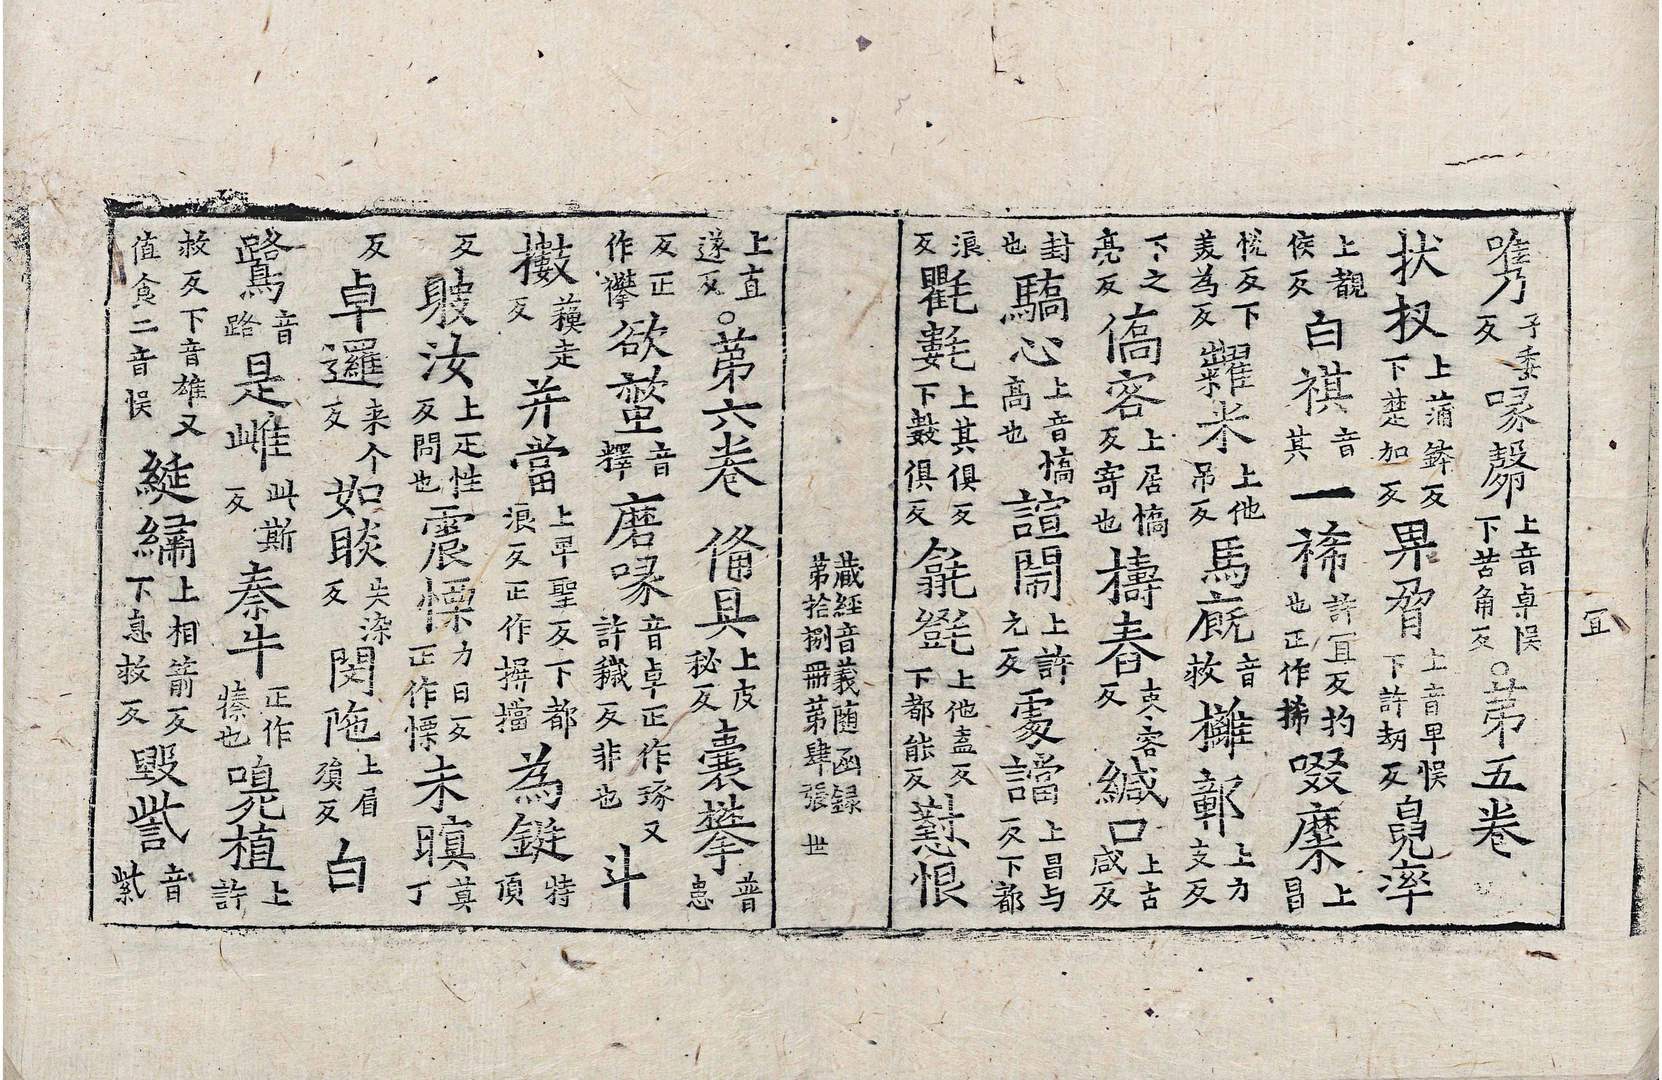 㭰 子委反 啄㱿 上音卓悮下苦角反 ○第五卷
狀杈 上蒲鉢反下楚加反 畀脅 上音畢悮下許劫反 皃率
上覩侯反 白祺 音其 一狶 許冝反扚也正作捇 啜糜 上昌
恱反下美為反 糶米 上他吊反 馬廐 音救 㰚鄣 上力支反
下之亮反 僑客 上居憍反寄也 檮舂 束容反 緘口 上古咸反
封也 驕心 上音憍高也 諠閙 上許元反 處譡 上昌与反下都
浪反 氍𣰽 上其俱反下數俱反 毾㲪 上他盍反下都能反 懟恨
藏經音義随函録
第拾捌冊第肆張 世
上直遂反 ○第六卷 俻具 上皮秘反 囊攀 普患
反正作攀 欲螫 音釋 磨啄 音卓正作琢又許穢反非也 斗
擻 蘓走反 并當 上畢聖反下都浪反正作摒擋 為鋌 特頂
反 聀汝 上疋性反問也 震慄 力日反正作慄 未瞋 莫丁
反 卓邏 来个反 如睒 失染反 閔陁 上眉殞反 白
鷺 音路 是雌 此斯反 秦牛 正作㮈也 嗅植 上許
救反下音雄又值食二音悮 綖繡 上相箭反下息救反 毀訾 音紫
冝